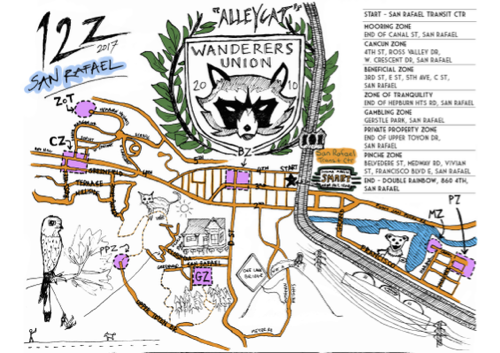 12Z
2017
SAN RAFAEL
"ALLEYCAT"
WANDERERS
UNION
20 10
START - SAN RAFAEL TRANSIT CTR
MOORING ZONE
END OF CANAL ST, SAN RAFAEL
CANCUN ZONE
4TH ST, ROSS VALLEY DR,
W. CRESCENT DR, SAN RAFAEL
BENEFICIAL ZONE
3RD ST, E ST, 5TH AVE, C ST,
SAN RAFAEL
ZONE OF TRANQUILITY
END OF HEPBURN HTS RD, SAN RAFAEL
GAMBLING ZONE
GERSTLE PARK, SAN RAFAEL
PRIVATE PROPERTY ZONE
END OF UPPER TOYON DR,
SAN RAFAEL
PINCHE ZONE
BELVEDERE ST, MEDWAY RD, VIVIAN
ST, FRANCISCO BLVD E, SAN RAFAEL
END - DOUBLE RAINBOW, 860 4TH,
SAN RAFAEL
ZoT
CZ
BZ
4TH
START
San Rafael
START
GREENFIELD
TERRACE
D ST
MZ
PZ
FRANCISCO
PPZ
SAN RAFAEL
GZ
ONE LANE
BRIDGE
UPPER TOYON DR